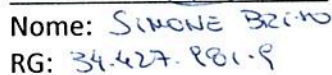 Nome: SIMONE BRITO
RG: 34.427.981-9